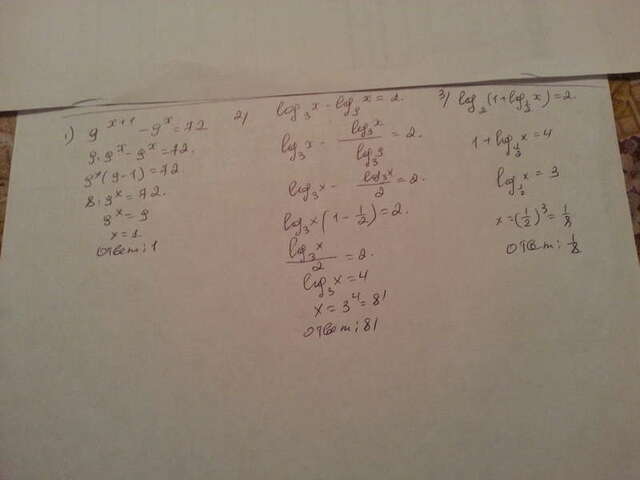 1) 9^(x+1) - 9^x = 72
9·9^x - 9^x = 72.
9^x(9-1) = 72
8·9^x = 72.
9^x = 9
x = 1.
Ответ: 1
2) log₃x - log₉x = 2.
log₃x - log₃x/log₃9 = 2.
log₃x - log₃x/2 = 2.
log₃x(1 - 1/2) = 2.
log₃x/2 = 2.
log₃x = 4
x = 3⁴ = 81
Ответ: 81
3) log₂(1 + log_(1/2)x) = 2.
1 + log_(1/2)x = 4
log_(1/2)x = 3
x = (1/2)³ = 1/8
Ответ: 1/8